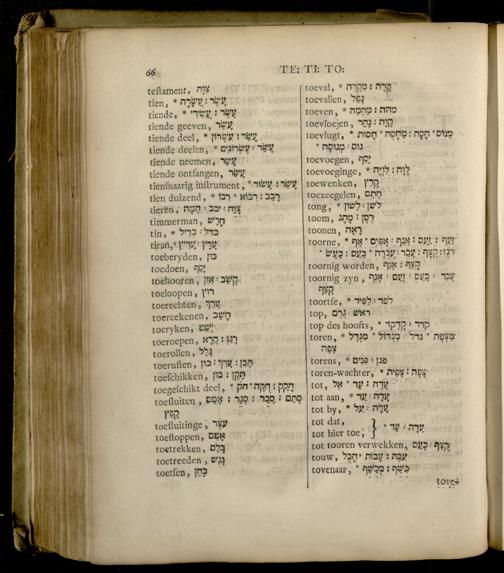 66
TE: TI: TO:
testament, צוה
tien, * עשר : עשרה
tiende, * עשר : עשירי
tiende geeven, עשר
tiende deel, * עשר : עשרון
tiende deelen, * עשר : עשרונים
tiende neemen, עשר
tiende ontfangen, עשר
tiensnaarig instrument, * עשר : עשור
tien duizend, * רבב : רבוא
tieren,
timmerman, חרש
tin, * בדל : בדיל
tiran, * ערץ : עריץ
toeberyden, כון
toedoen, יסף
toehooren, קשב : אזן
toeloopen, רוץ
toerechten, ערך
toereekenen, חשב
toeryken, ישט
toeroepen, רנן : קרא
toerollen, גלל
toerusten, תכן : ערך : כון
toeschikken, תקן : כון
toegeschikt deel, * חקק : חקה : חק
toesluiten, סתם : סכר : סגר : אטם
קפץ
toesluitinge, עצר
toestoppen, אטם
toetrekken, בלם
toetreeden, נגש
toetsen, בחן
toeval, * קרה : מקרה
toevallen, נפל
toeven, * מהה : מהמה
toevloejen, קוה : נהר
toevlugt, * מנוס : חסה : מחסה : חסות
נוס : מנוסה
toevoegen, יסף
toevoeginge, * לוה : לויה
toewenken, קרץ
toezeegelen, חתם
tong, * לשן : לשון
toom, רסן : מתג
toonen, ראה
toorne, * זעף : זעם : אנף : אפים : אף
רגז : קצף : עבר : עברה : כעס : כעש
toornig worden, קצף : אנף
toornig zyn, עבר : כעס : זעם : אנף
קצף
toortse, * לפד : לפיד
top, ראש : גרם
top des hoofts, * קדד : קדקד
toren, * מצפה : גדל : מגדול : מגדל
צפה
torens, * פנן : פנים
toren-wachter, * צפה : צפית
tot, עדה : עד : אל
tot aan, * עדה : עד
tot by, * עלה : על
tot dat,
tot hier toe, } * עדה : עד
tot tooren verwekken, קצף : כעס
touw, עבת : עבות : חבל
tovenaar, * כשף : מכשף
tove-